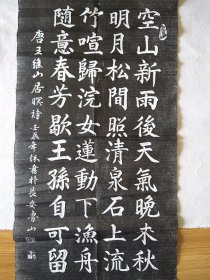 空山新雨後天氣晚来秋
明月松間照清泉石上流
竹喧歸浣女蓮動下漁舟
隨意春芳歇王孫自可留
唐王維山居暝詩